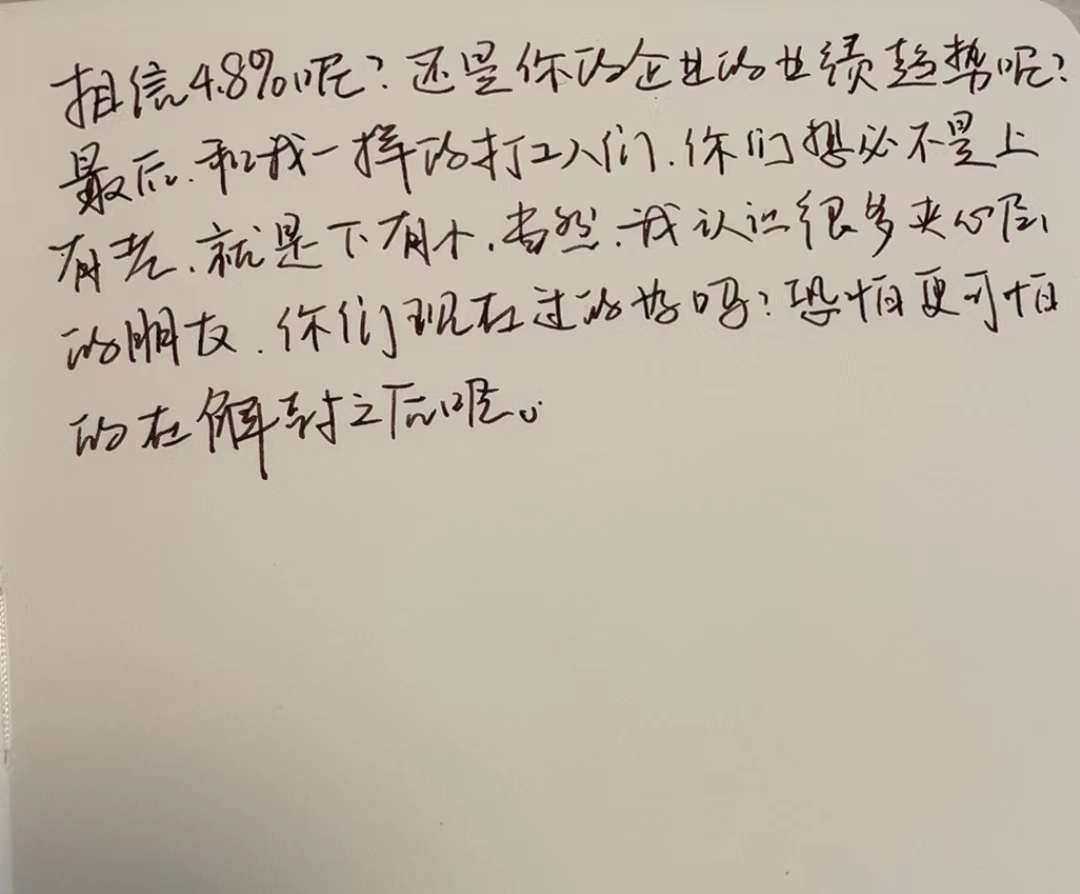 相信4.8%呢？还是你的企业的业绩趋势呢？
最后.和我一样的打工人们.你们想必不是上
有老.就是下有小.当然.我认识很多夹心层
的朋友.你们现在过的好吗？恐怕更可怕
的在解封之后呢。